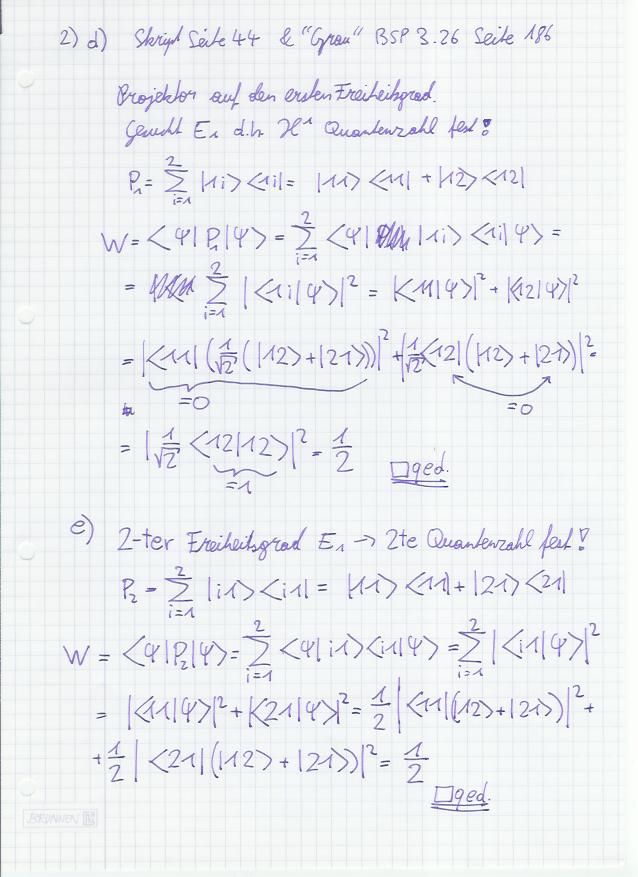 2) d) Skript Seite 44 & "Grau" BSP 3.26 Seite 186
Projektor auf den ersten Freiheitsgrad.
Gesucht E₁ d.h. ℋ¹ Quantenzahl fest!
P₁ = ∑_{i=1}^{2} |1i> <1i| = |11> <11| + |12> <12|
W = <ψ|P₁|ψ> = ∑_{i=1}^{2} <ψ| |1i> <1i|ψ> =
= ∑_{i=1}^{2} |<1i|ψ>|² = |<11|ψ>|² + |<12|ψ>|²
= |<11| (1/√2 (|12> + |21>))|² + |1/√2 <12| (|12> + |21>)|² =
=0 =0
= |1/√2 <12|12>|² = 1/2 □ qed.
=1
e) 2-ter Freiheitsgrad E₁ → 2te Quantenzahl fest!
P₂ = ∑_{i=1}^{2} |i1> <i1| = |11> <11| + |21> <21|
W = <ψ|P₂|ψ> = ∑_{i=1}^{2} <ψ|i1> <i1|ψ> = ∑_{i=1}^{2} |<i1|ψ>|²
= |<11|ψ>|² + |<21|ψ>|² = 1/2 |<11|(|12> + |21>)|² +
+ 1/2 | <21| (|12> + |21>)|² = 1/2
□ qed.
BRUNNEN